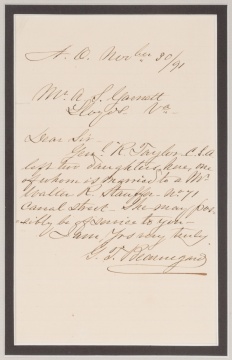 N. O. Novber 30/91
Mr. A. S. Garnett
Lloyds. Va—
Dear Sir—
Genl R. Taylor, C.S.A.
left two daughters here, one
of whom is married to a Mr.
Walter R. Stauffer – No 71
Canal street – She may pos-
sibly be of service to you—
I am Yrs very truly,
G. T. Beauregard